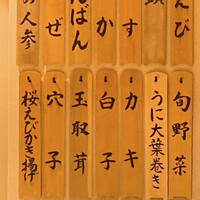 えび
頭
す
か
んばん
ぜ
の人参
旬野菜
うに大葉巻き
カキ
白子
玉取茸
穴子
桜えびかき揚げ